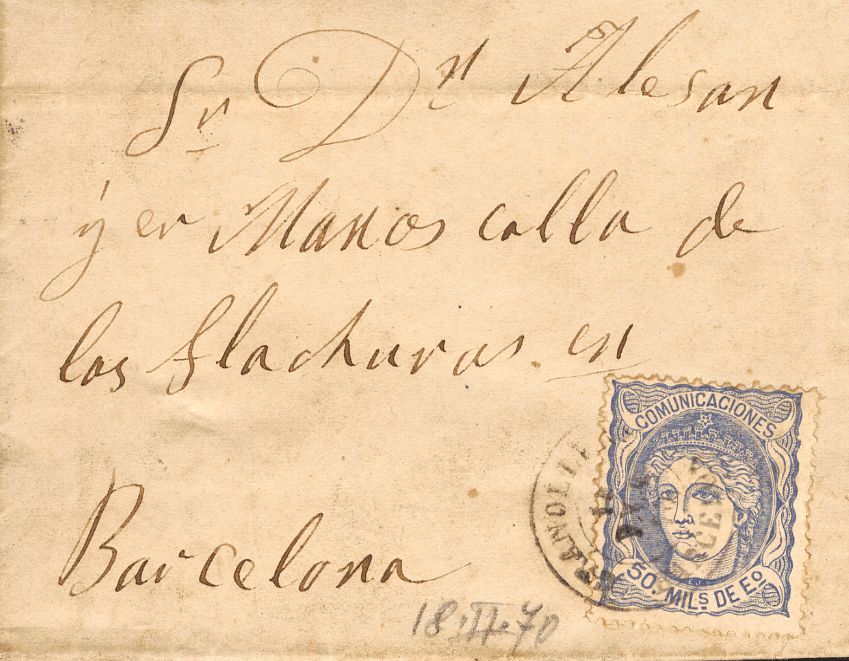 Sr Dn Alesan
y er Manos calla de
las flachuras en
Barcelona
COMUNICACIONES
50. MILS DE EO.
18.II.70